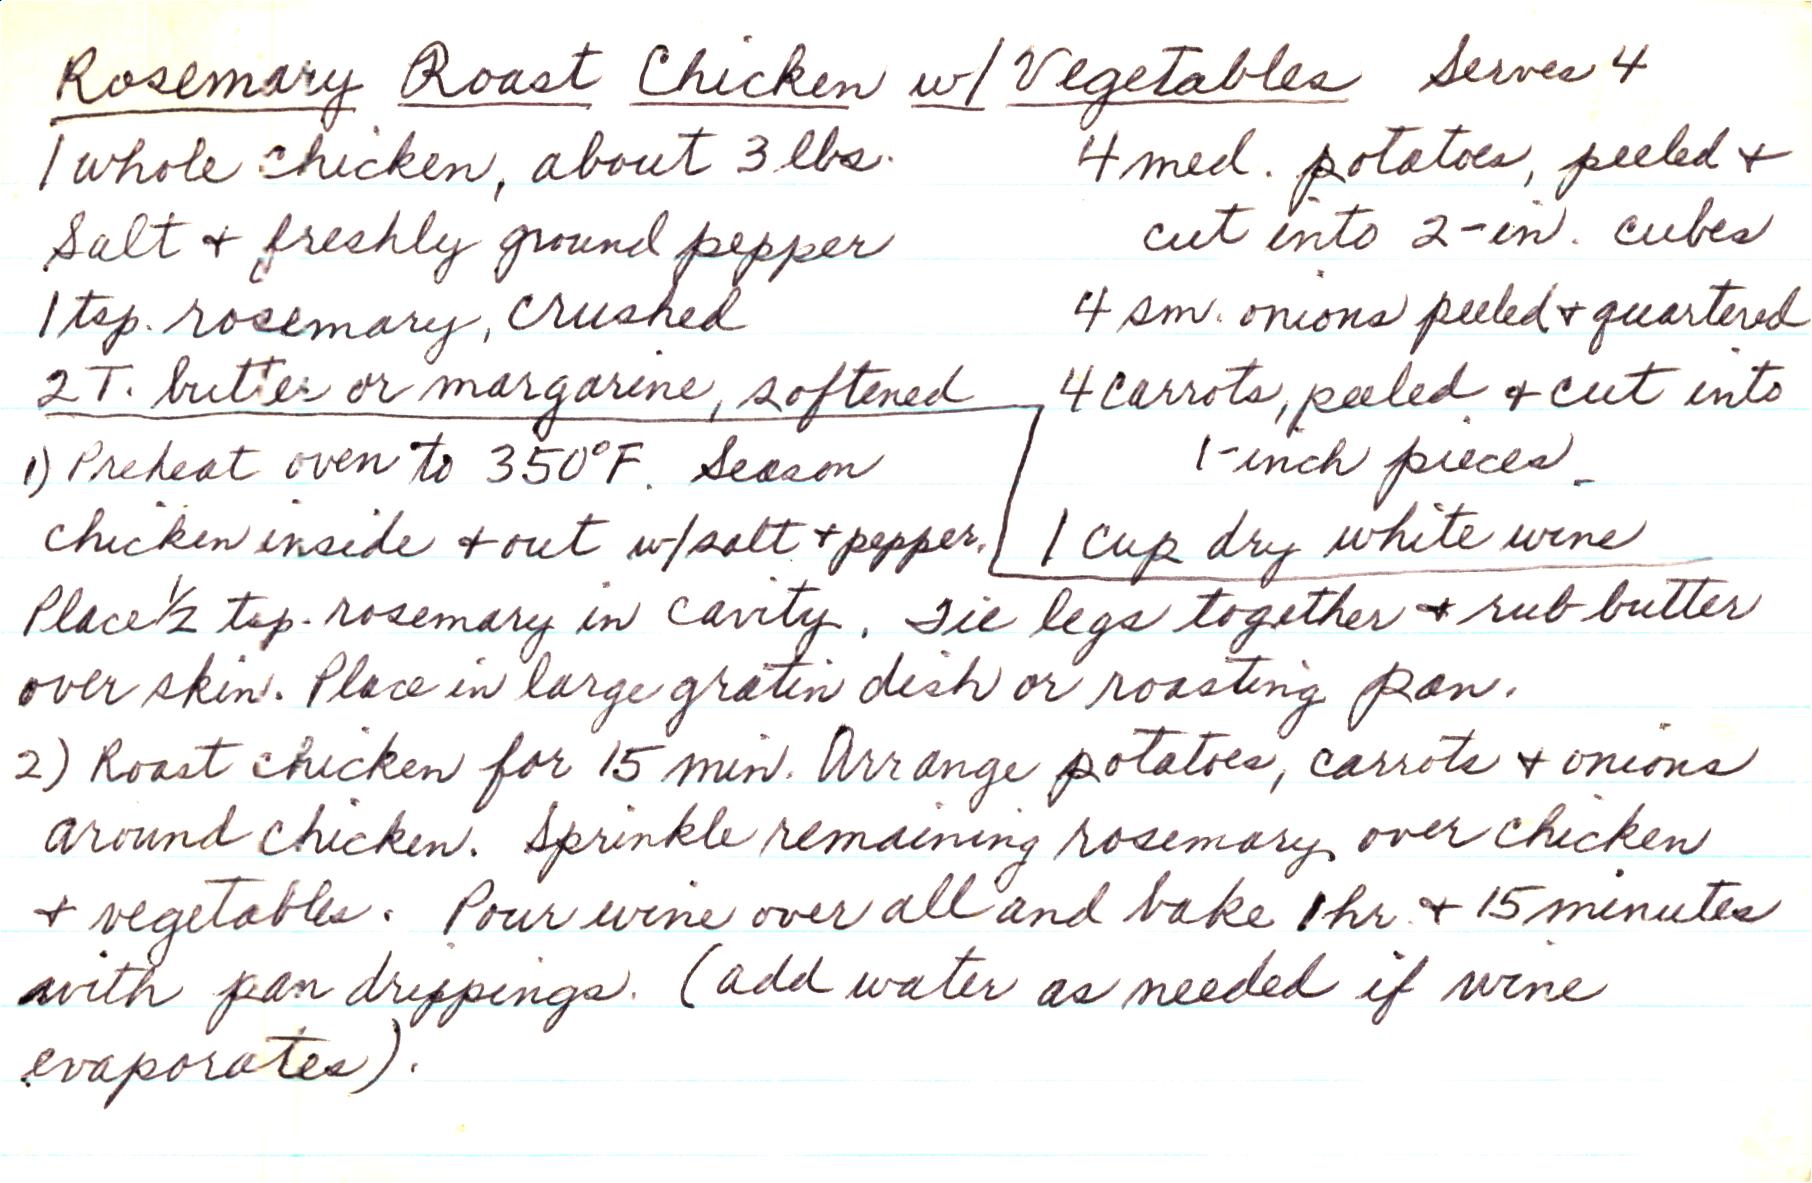 Rosemary Roast Chicken w/ Vegetables Serves 4
1 whole chicken, about 3 lbs.
Salt + freshly ground pepper
1 tsp. rosemary, crushed
2 T. butter or margarine, softened
4 med. potatoes, peeled +
cut into 2-in. cubes
4 sm. onions peeled + quartered
4 carrots, peeled + cut into
1-inch pieces
1 cup dry white wine
1) Preheat oven to 350°F. Season
chicken inside + out w/ salt + pepper.
Place 1/2 tsp. rosemary in cavity. Tie legs together + rub butter
over skin. Place in large gratin dish or roasting pan.
2) Roast chicken for 15 min. Arrange potatoes, carrots + onions
around chicken. Sprinkle remaining rosemary over chicken
+ vegetables. Pour wine over all and bake 1 hr. + 15 minutes
with pan drippings. (add water as needed if wine
evaporates).